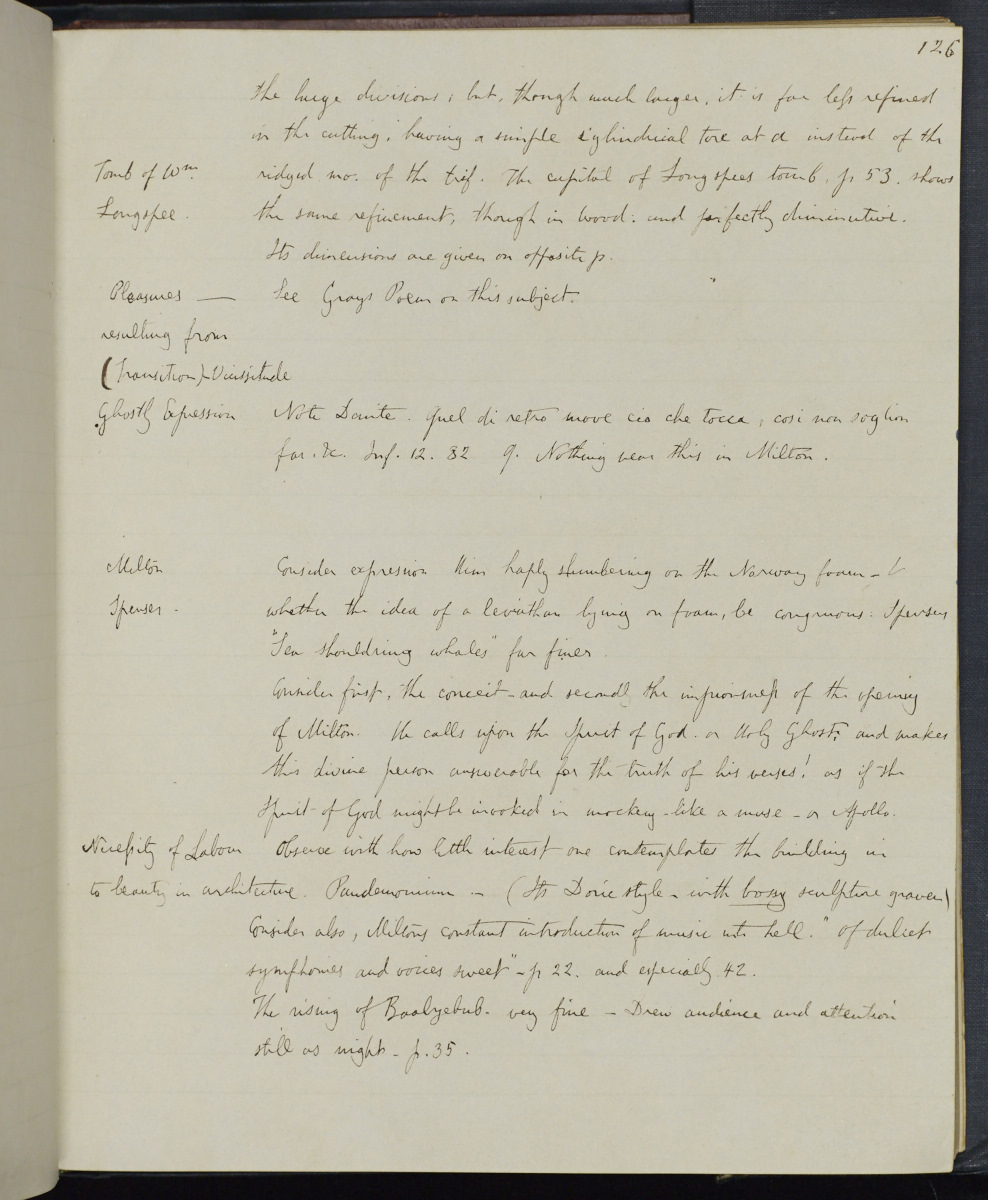 126
the large divisions; but, though much larger, it is far less refined
in the cutting; having a simple cylindrical tore at a instead of the
Tomb of Wm. ridged mo. of the trif. The capital of Longspees tomb, p. 53. shows
Longspee. the same refinement, though in wood: and perfectly diminutive.
Its dimensions are given on opposite p.
Pleasures — See Grays Poem on this subject.
resulting from
(Transition) Vicissitude
Ghostly Expression Note Dante. quel di retro move cio che tocca, cosi non soglion
far. &c. Inf. 12. 82 q. Nothing near this in Milton.
Milton Consider expression Him haply slumbering on the Norway foam - &
Spenser - whether the idea of a leviathan lying on foam, be congruous. Spensers
"Sea shouldring whales" far finer.
Consider first, the conceit - and secondly the impiousness of the opening
of Milton. He calls upon the Spirit of God. or Holy Ghost; and makes
this divine person answerable for the truth of his verses! as if the
Spirit of God might be invoked in mockery - like a muse - or Apollo.
Necessity of Labour Observe with how little interest one contemplates the building in
to beauty in architecture. Pandemonium - (Its Doric style - with bossy sculpture graven)
Consider also, Miltons constant introduction of music into hell. "of dulcet
symphonies and voices sweet" - p 22. and especially 42.
The rising of Baalzebub. very fine - Drew audience and attention
still as night - p. 35.